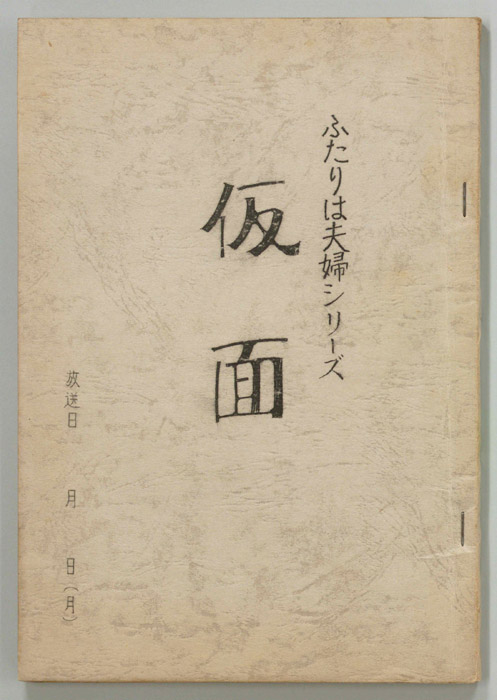 ふたりは夫婦シリーズ
仮面
放送日　月　日（月）